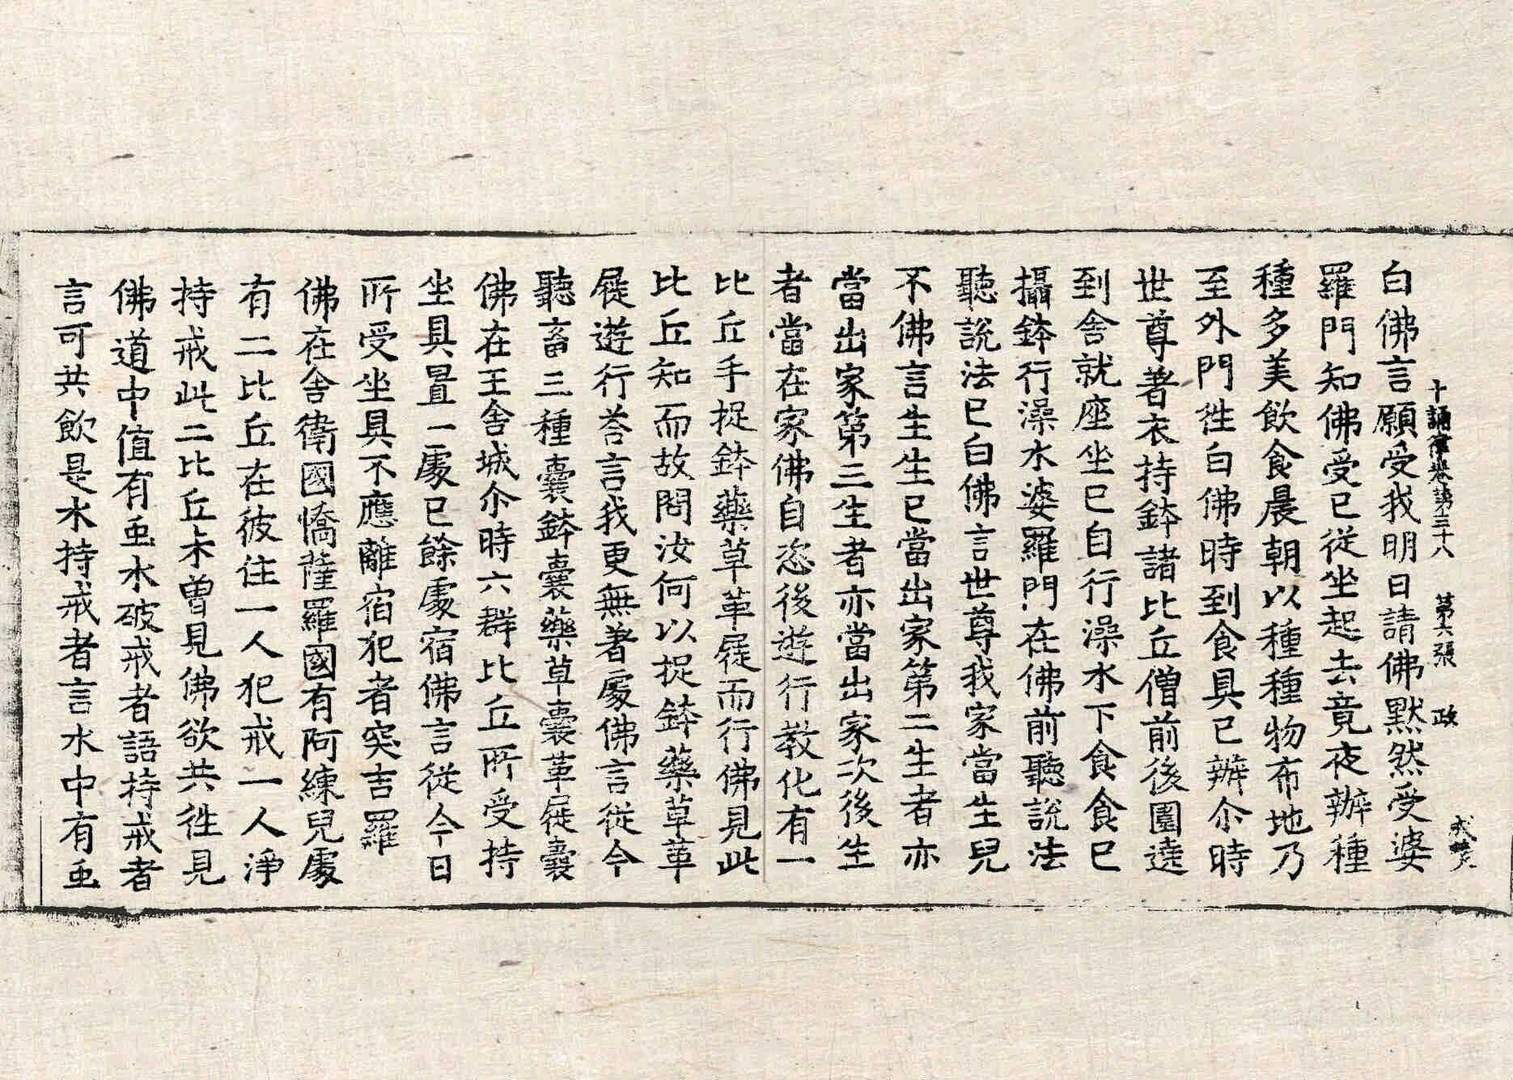 十誦律卷第三十八　第六張　政
白佛言願受我明日請佛默然受婆
羅門知佛受已從坐起去竟夜辦種
種多美飲食晨朝以種種物布地乃
至外門徃白佛時到食具已辦尒時
世尊著衣持鉢諸比丘僧前後圍遶
到舍就座坐已自行澡水下食食已
攝鉢行澡水婆羅門在佛前聽說法
聽說法已白佛言世尊我家當生兒
不佛言生生已當出家第二生者亦
當出家第三生者亦當出家次後生
者當在家佛自恣後遊行教化有一
比丘手捉鉢藥草革屣而行佛見此
比丘知而故問汝何以捉鉢藥草革
屣遊行荅言我更無著處佛言從今
聽畜三種囊鉢囊藥草囊革屣囊
佛在王舍城尒時六群比丘所受持
坐具置一處已餘處宿佛言從今日
所受坐具不應離宿犯者突吉羅
佛在舍衛國憍薩羅國有阿練兒處
有二比丘在彼住一人犯戒一人淨
持戒此二比丘未曾見佛欲共徃見
佛道中值有虫水破戒者語持戒者
言可共飲是水持戒者言水中有虫